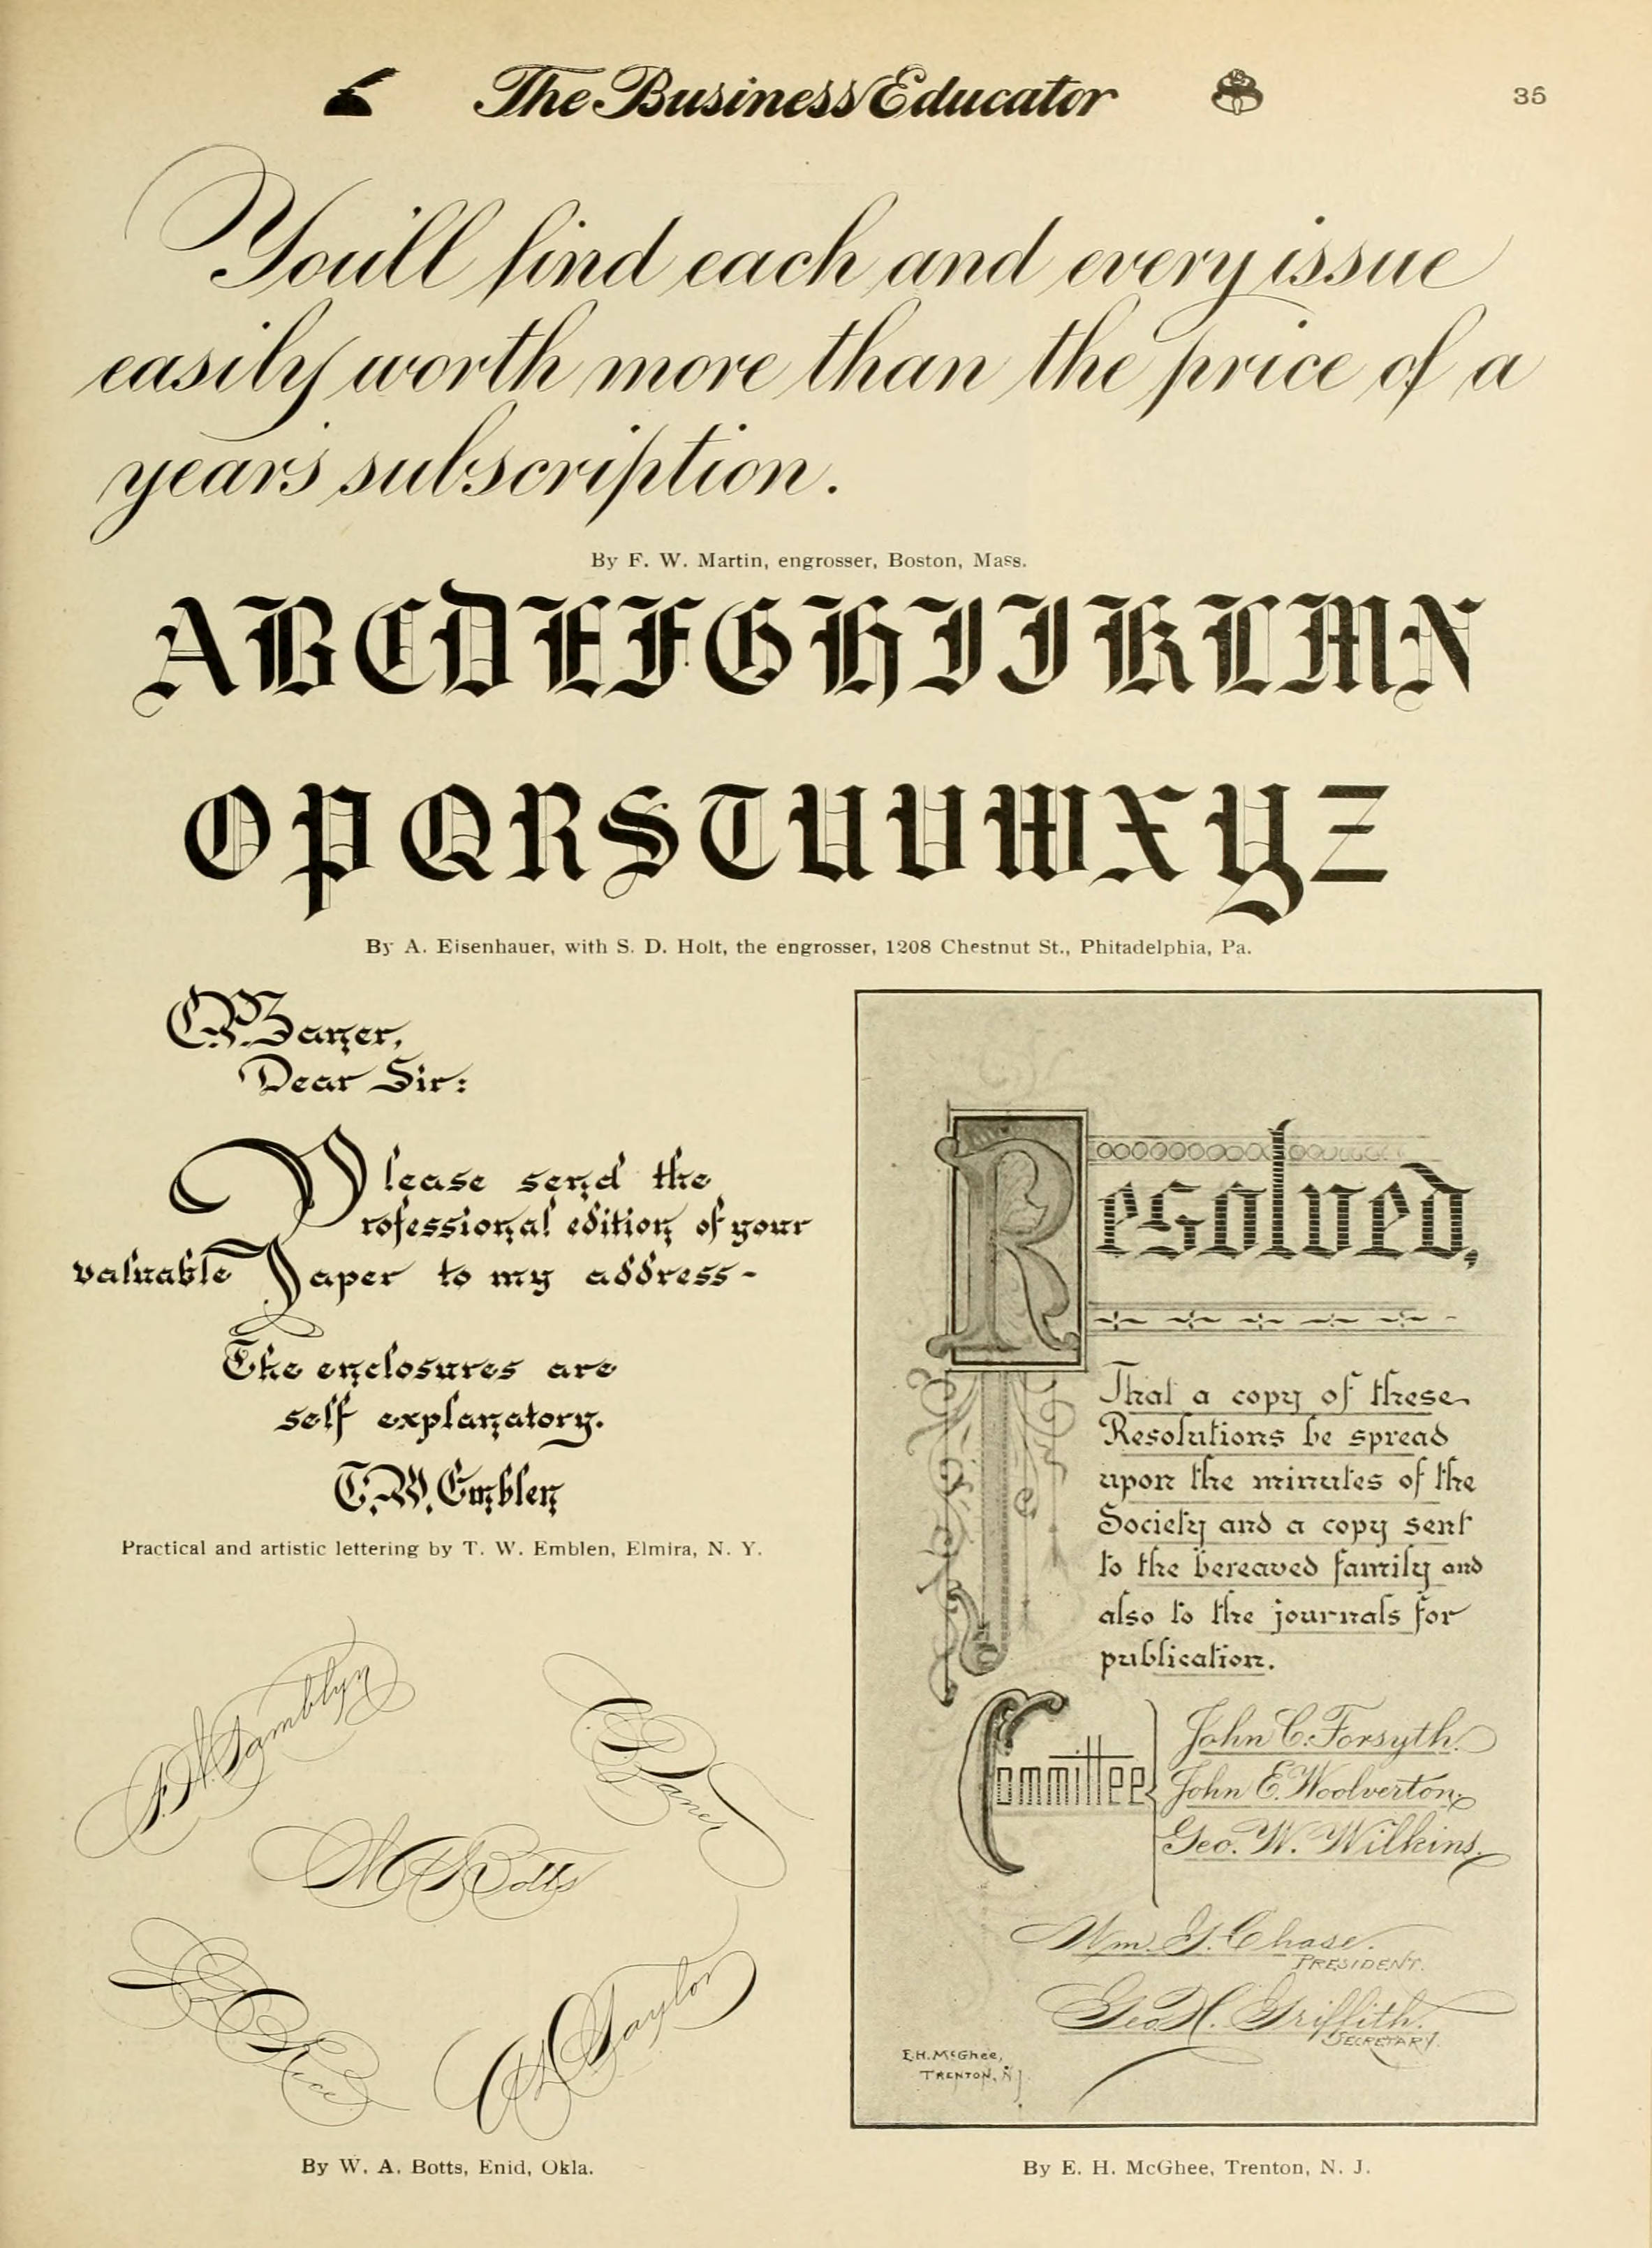 The Business Educator
35
You'll find each and every issue
easily worth more than the price of a
years subscription.
By F. W. Martin, engrosser, Boston, Mass.
A B C D E F G H I J K L M N
O P Q R S T U V W X Y Z
By A. Eisenhauer, with S. D. Holt, the engrosser, 1208 Chestnut St., Phitadelphia, Pa.
C. P. Zaner,
Dear Sir:
Please send the
Professional edition of your
valuable Paper to my address-
The enclosures are
self explanatory.
T. W. Emblen
Practical and artistic lettering by T. W. Emblen, Elmira, N. Y.
F. W. Tamblyn
C. P. Zaner
W A Botts
Rice
Taylor
By W. A. Botts, Enid, Okla.
Resolved,
That a copy of these
Resolutions be spread
upon the minutes of the
Society and a copy sent
to the bereaved family and
also to the journals for
publication.
Committee
John C. Forsyth.
John E. Woolverton.
Geo. W. Wilkins.
Wm. G. Chase.
PRESIDENT.
Geo. H. Griffith.
SECRETARY.
E.H. McGhee,
TRENTON, N J.
By E. H. McGhee, Trenton, N. J.